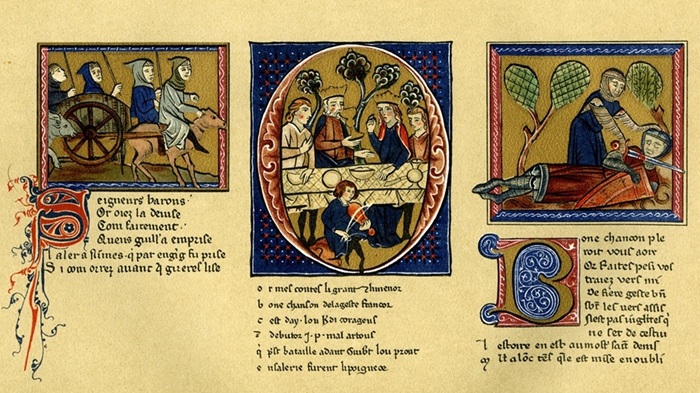 Seigneurs barons
Or oiez la deuise
Com faitement
Quens guill'a emprise
la ler a nismes q par engig fu prise
Si com orrez auant q gi eres lise
or mes contes li grant
bone chanson de la geste francor
c est day lou kdi corageus
debutor J p mal artous
q pst bataille a dant Guibt lou prout
en salerie furent li poigneor
Bone chancon ple
roit vous aoir
Or faites pesi vos
traiez vers mi
De fiere geste bn
sbt les vers assis
Nest pas iuglires q
ne set de cestui
Lestoire en est au most saint denis
il a loc tes qle est mise en oubli